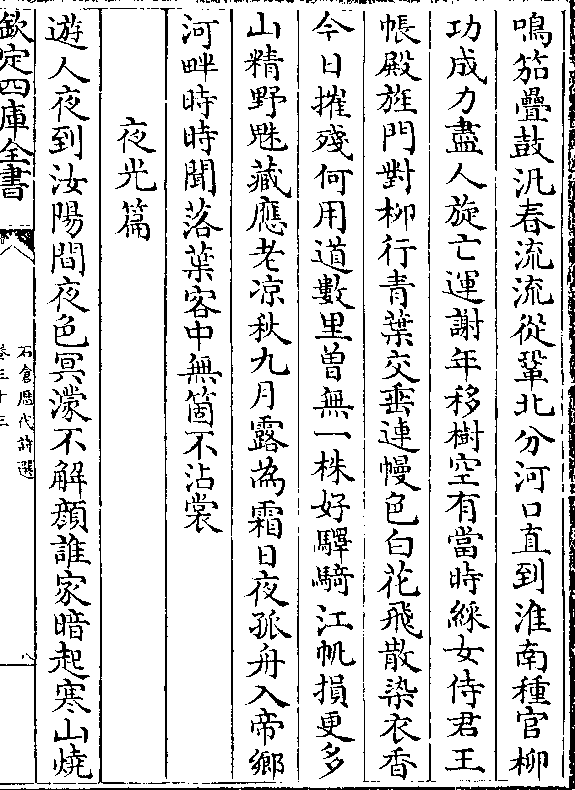 鳴笳疊鼓汎春流流從鞏北分河口直到淮南種官柳
功成力盡人旋亡運謝年移樹空有當時綵女侍君王
帳殿旌門對柳行青葉交垂連幔色白花飛散染衣香
今日摧殘何用道數里曽無一株好驛騎江帆損更多
山精野魅藏應老凉秋九月露為霜日夜孤舟入帝鄉
河畔時時聞落葉客中無箇不沾裳
夜光篇
遊人夜到汝陽間夜色冥濛不解顔誰家暗起寒山燒
欽定四庫全書
石倉歴代詩選
卷三十三
八